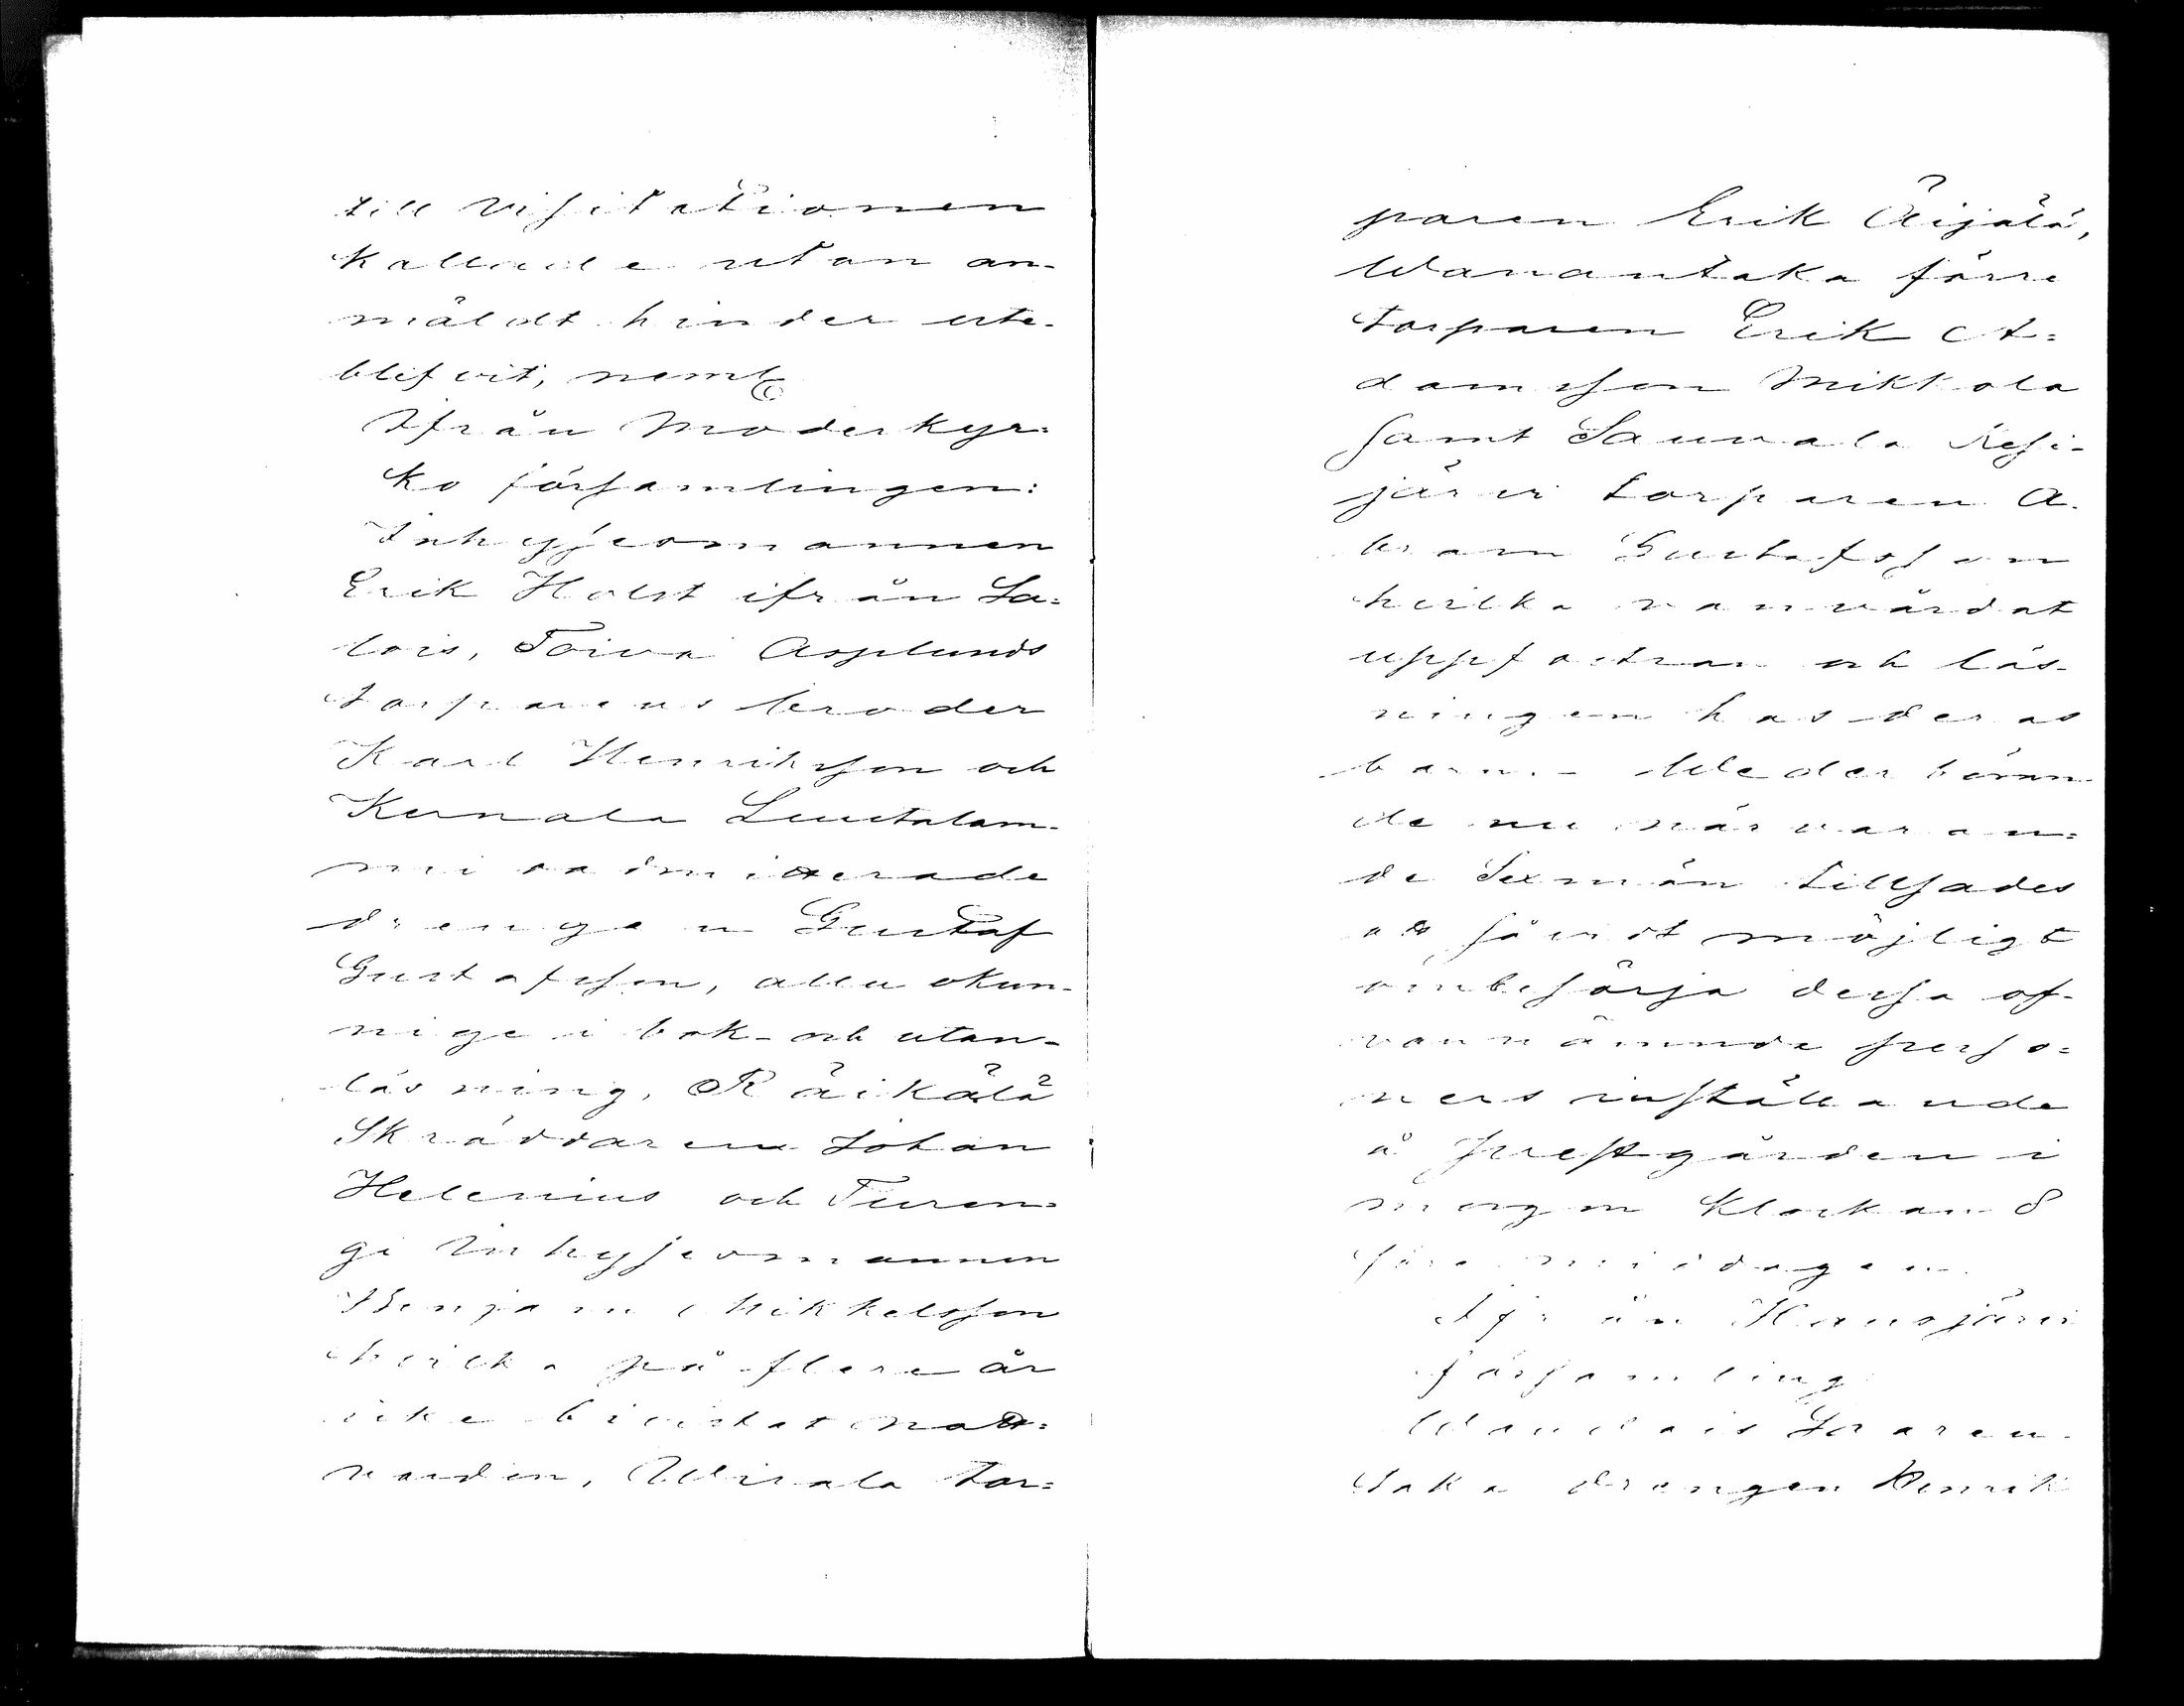 till visitationen
kallade utan an-
mäldt hinder ute-
blifvit, neml
Ifrån Moderkyr=
ko församlingen:
Inhysesmannen
Erik Holst ifrån La=
lois, Toiva Asplunds
torparens broder
Karl Henriksson och
Kernala Luutalam-
mi admitterade
drengen Gustaf
Gustafsson, alla okun-
nige i bok- och utan-
läsning, Räikälä
Skräddaren Johan
Helenius och Turen=
gi Inhysesmannen
Benjam Mikkelsson
hvilka på flere år
icke bivistat natt=
varden, Wirala tor=
paren Erik Äijälä,
Wanantaka förre
torparen Erik A=
damsson Mikkola
samt Sauvala Kesi-
järvi torparen A.
bram Gustafsson
hvilka vanvårdat
uppfostran och läs-
ningen hos deras
barn. - Wederböran-
de nu närvaran=
de Sexmän tillsades
att såvidt möjligt
ombesörja dessa of-
vannämnde perso=
ners inställande
å prestgården i
morgon klockan 8
före middagen.
Ifrån Hausjärvi
församling
Wandais Laaren-
taka drengen Henrik